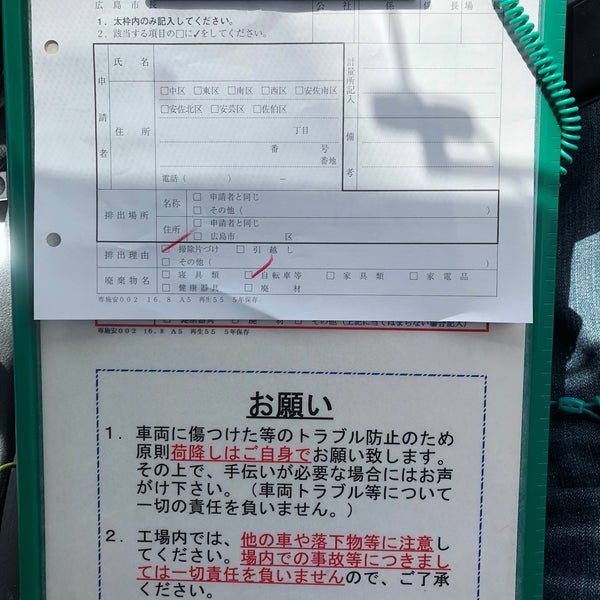 広島市長
公社 係 係長 場長
1．太枠内のみ記入してください。
2．該当する項目の□に✓をしてください。
申請者
氏名
計量所記入
□中区 □東区 □南区 □西区 □安佐南区
□安佐北区 □安芸区 □佐伯区
住所
丁目
番 号
番地
備考
電話（ ） －
排出場所
名称
□ 申請者と同じ
□ その他（ ）
住所
□ 申請者と同じ
□ 広島市 区
排出理由
□ 掃除片づけ □ 引越し
□ その他（ ）
廃棄物名
□ 寝具類 □ 自転車等 □ 家具類 □ 家電品
□ 健康器具 □ 廃材
専施安002 16.8 A5 再生55 5年保存
□ 健康器具 □ 廃材 □ その他（上記に当てはまらない場合記入）
専施安002 16.8 A5 再生55 5年保存
お願い
1．車両に傷つけた等のトラブル防止のため
原則荷降しはご自身でお願い致します。
その上で、手伝いが必要な場合にはお声
がけ下さい。（車両トラブル等について
一切の責任を負いません。）
2．工場内では、他の車や落下物等に注意し
てください。場内での事故等につきまし
ては一切責任を負いませんので、ご了承
ください。